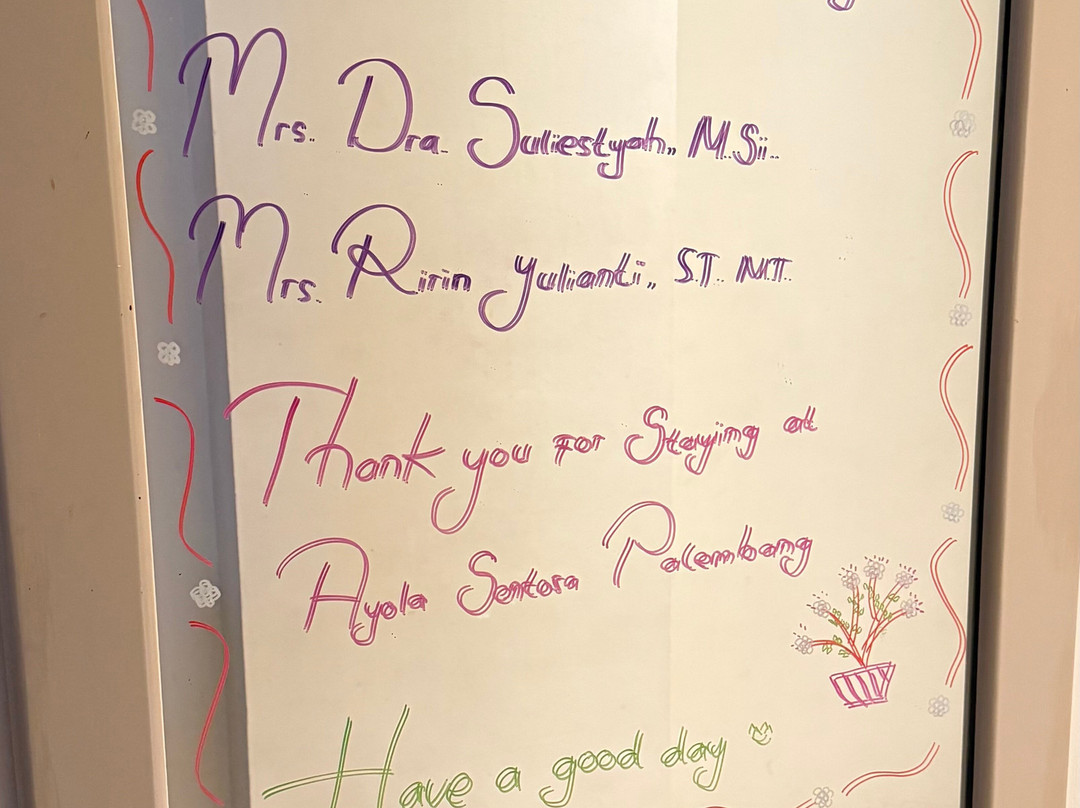 Mrs. Dra. Suliestyah,, M.Si..
Mrs. Ririn Yulianti,, S.T.. M.T.
Thank you For Staying at
Ayola Sentosa Palembang
Have a good day